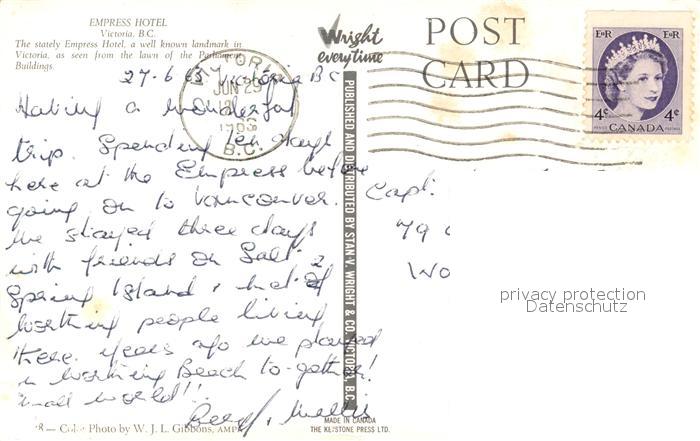 EMPRESS HOTEL
Victoria, B.C.
The stately Empress Hotel, a well known landmark in
Victoria, as seen from the lawn of the Parliament
Buildings.
27-6 63 Victoria B C
Having a wonderful
trip. Spending ten days
here at the Empress before
going on to Vancouver.
We stayed three days
with friends on Salt
Spring Island & met
Worthing people living
there. Years ago we played
in Worthing Beach to-gether!
Small world!!
Color Photo by W. J. L. Gibbons, AMPA
Wright
everytime
PUBLISHED AND DISTRIBUTED BY STAN V. WRIGHT & CO. VICTORIA, B.C.
MADE IN CANADA
THE KEYSTONE PRESS LTD.
POST
CARD
JUN 29
B.C.
E II R E II R
4c 4c
POSTES CANADA POSTAGE
Capt.
79
Wo
privacy protection
Datenschutz